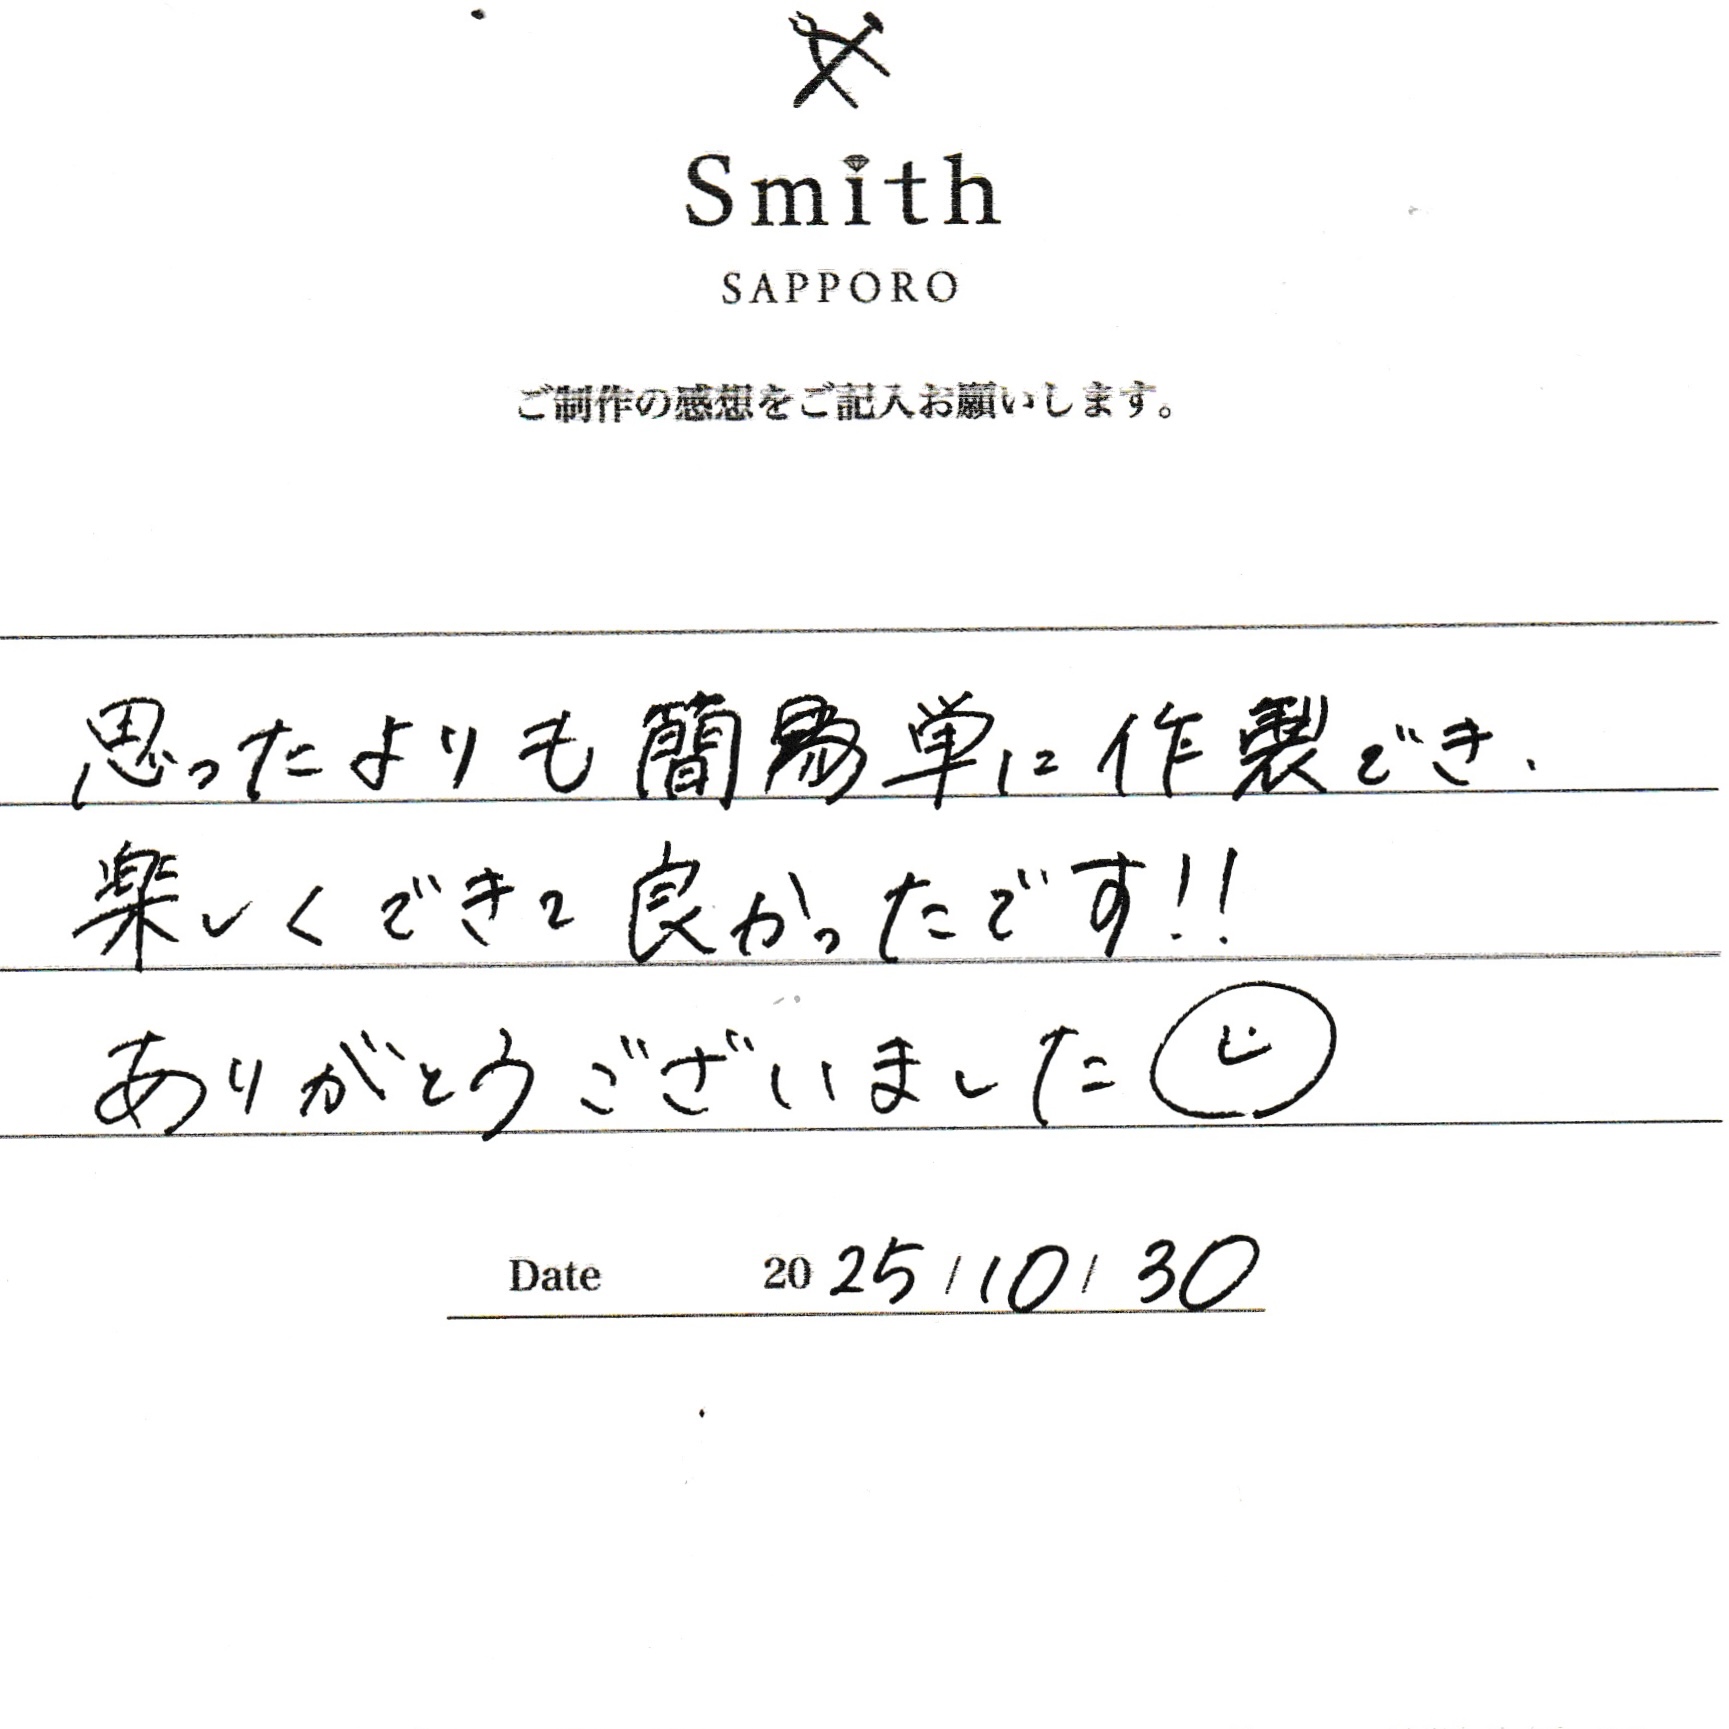 Smith
SAPPORO
ご制作の感想をご記入お願いします。
思ったよりも簡単に作製でき、
楽しくできて良かったです!!
ありがとうございました
Date 2025/10/30